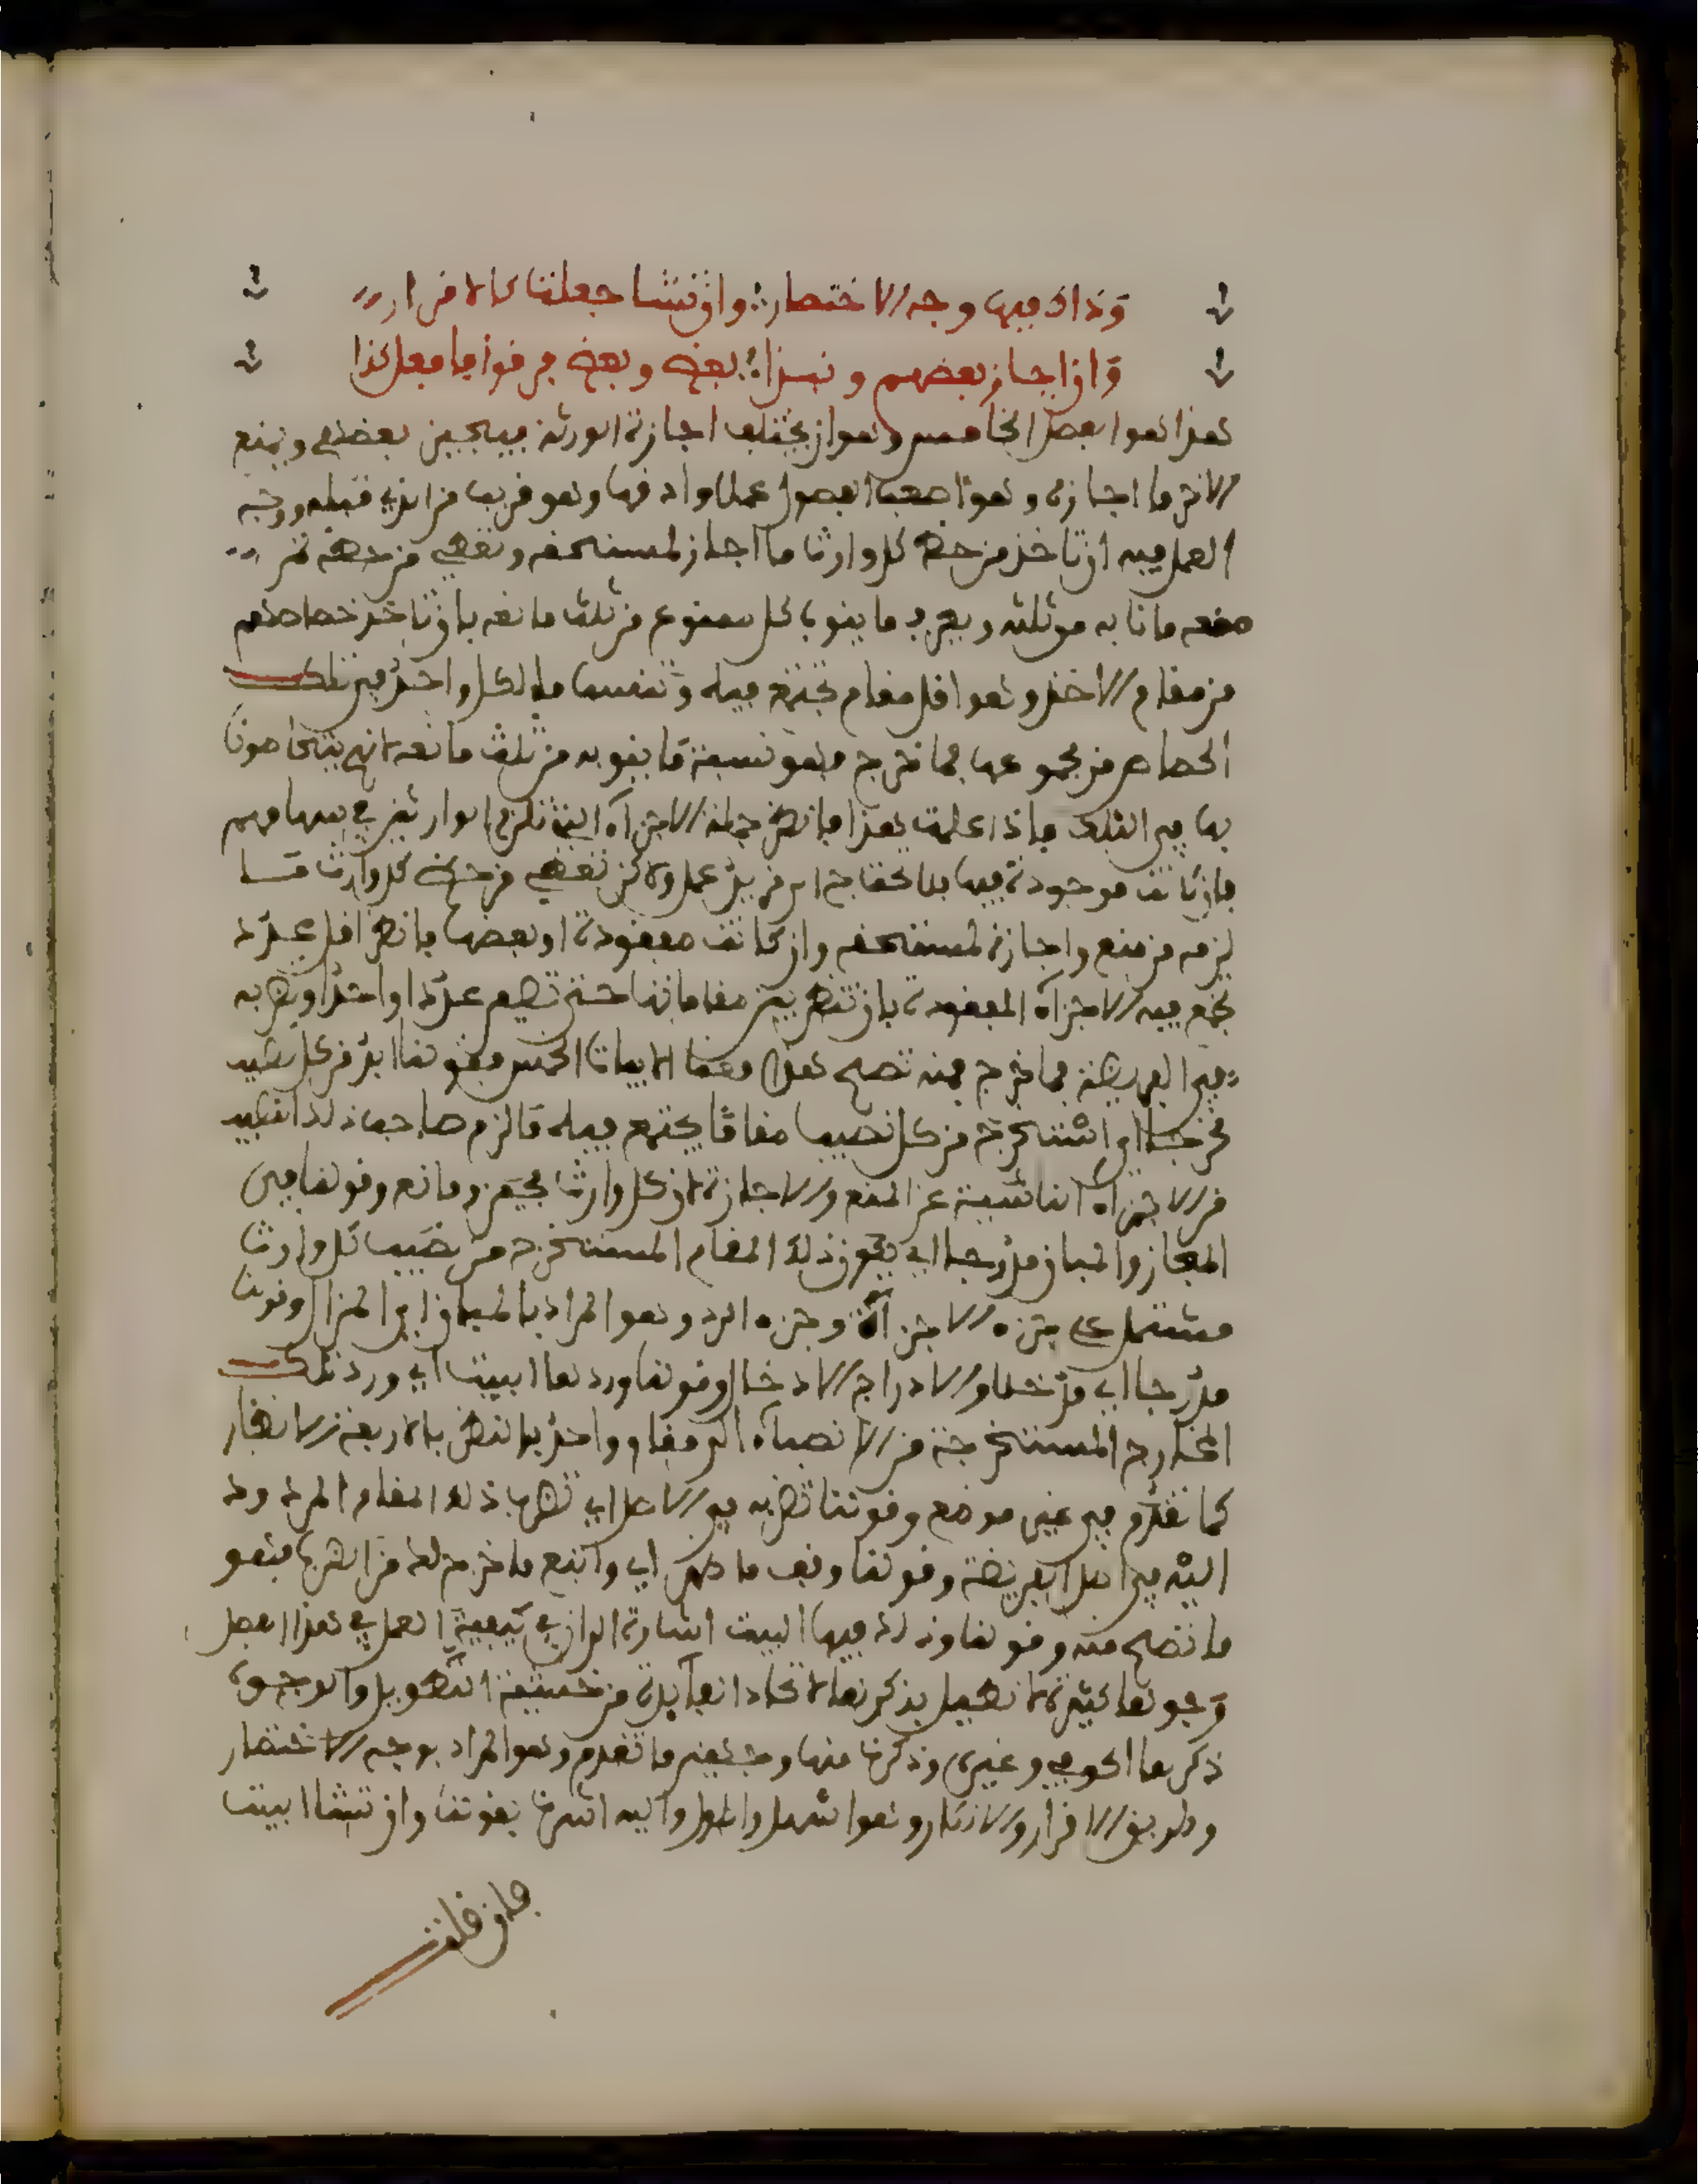 وذاك فيها وجه الاختصار ؛ وان تشا جعلتها كالاقرار
وان اجاز بعضهم ونبذا ؛ بعض وبعض فرقوا فافعل كذا
هذا هو الفصل الخامس وهو ان يختلف اجازة الورثة فيجيز بعضهم ويمنع
الاخر ما اجازه وهو اصعب الفصول عملا وادقها وهو قريب من الذي قبله ووجه
العمل فيه ان تاخذ من حظ كل وارث ما اجاز لمستحقه وتعطي من حظه لمن
منعه ما نابه من ثلثه ويعرف ما ينوب كل ممنوع من ثلث مانعه بان تاخذ حصاصهم
من مقام الاخذ وهو اقل مقام تجتمع فيه وتنسب ما لكل واحد من تلك
الحصاص من مجموعها فما خرج فهو نسبة ما ينوبه من ثلث مانعه لانهم يتحاصون
بها في الثلث فاذا علمت هذا فانظر جملة الاجزاء التي تلزم الوارثين في سهامهم
فان كانت موجودة فيها فلا تحتاج الى مزيد عمل ولاكن تعطي من حظ كل وارث ما
لزمه من منع واجازة لمستحقه وان كانت مفقودة او بعضها فانظر اقل عدد
تجمع فيه الاجزاء المفقودة بان تنظر بين مقاماتها حتى تصير عددا واحدا وتضربه
في الفريضة فما خرج فمنه تصح هذا معنى الابيات الخمس فقولنا ابد من كل نصيب
مخرجا اي استخرج من كل نصيب مقاما يجتمع فيه ما لزم صاحب ذلك النصيب
من الاجزاء الناشية عن المنع والاجازة لان كل وارث مجيز ومانع وقولنا في
المجاز والمبان مدرجا اي يكون ذلك المقام المستخرج من نصيب كل وارث
مشتمل على جزء الاجزاء وجزء الرد وهو المراد بالمبان اي المزال وقولنا
مدرجا اي مدخلا والادراج الادخال وقولنا ورد ها البيت اي ورد تلك
المخارج المستخرجة من الانصباء الى مقام واحد بالنظر بالاربعة الانظار
كما تقدم في غير موضع وقولنا تضربه في الاصل اي تضرب ذلك المقام المردود
اليه في اصل الفريضة وقولنا وتبع ما ظهر اي واتبع ما خرج لك من الضرب فهو
ما تصح منه وقولنا وذاك فيها البيت اشارة الى ان في كيفية العمل في هذا الفصل
وجوها كثيرة لا نطيل بذكرها لاتحاد الفايدة من خشية التطويل والوجوه
ذكرها الحوفي وغيره وذكرنا منها وجهين ما تقدم وهو المراد بوجه الاختصار
وطريق الاقرار والانكار وهو اسهل واطول واليه اشرنا بقولنا وان تشا البيت
فان قلت